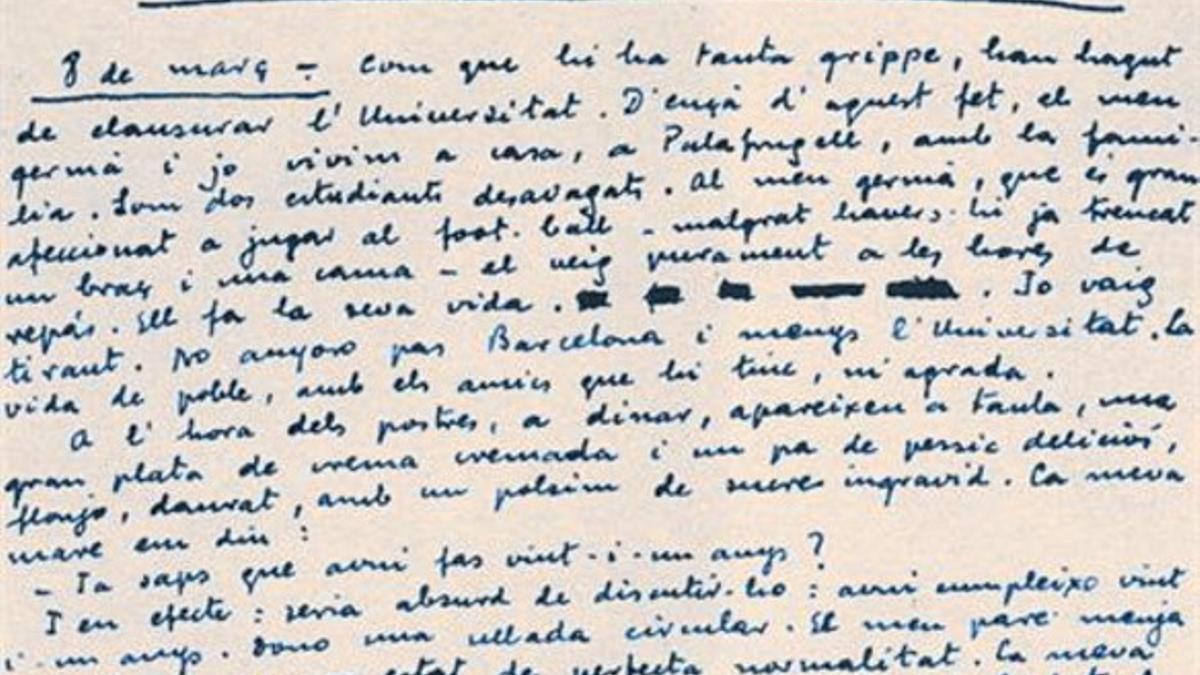 8 de març – Com que hi ha tanta grippe, han hagut
de clausurar l'Universitat. D'ençà d'aquest fet, el meu
germà i jo vivim a casa, a Palafrugell, amb la famí-
lia. Som dos estudiants desvagats. Al meu germà, que és gran
afeccionat a jugar al foot-ball – malgrat haver-s-hi ja trencat
un braç i una cama – el veig purament a les hores de
repàs. Ell fa la seva vida. . Jo vaig
tirant. No anyoro pas Barcelona i menys l'Universitat. La
vida de poble, amb els amics que hi tinc, m'agrada.
A l'hora dels postres, a dinar, apareixen a taula, una
gran plata de crema cremada i un pa de pessic deliciós,
flonjo, daurat, amb un polsim de sucre ingravid. La meva
mare em diu:
– Ja saps que avui fas vint-i-un anys?
I en efecte: seria absurd de discutir-ho: avui cumpleixo vint
i-un anys. Dono una ullada circular. El meu pare menja
estat de perfecta normalitat. La meva